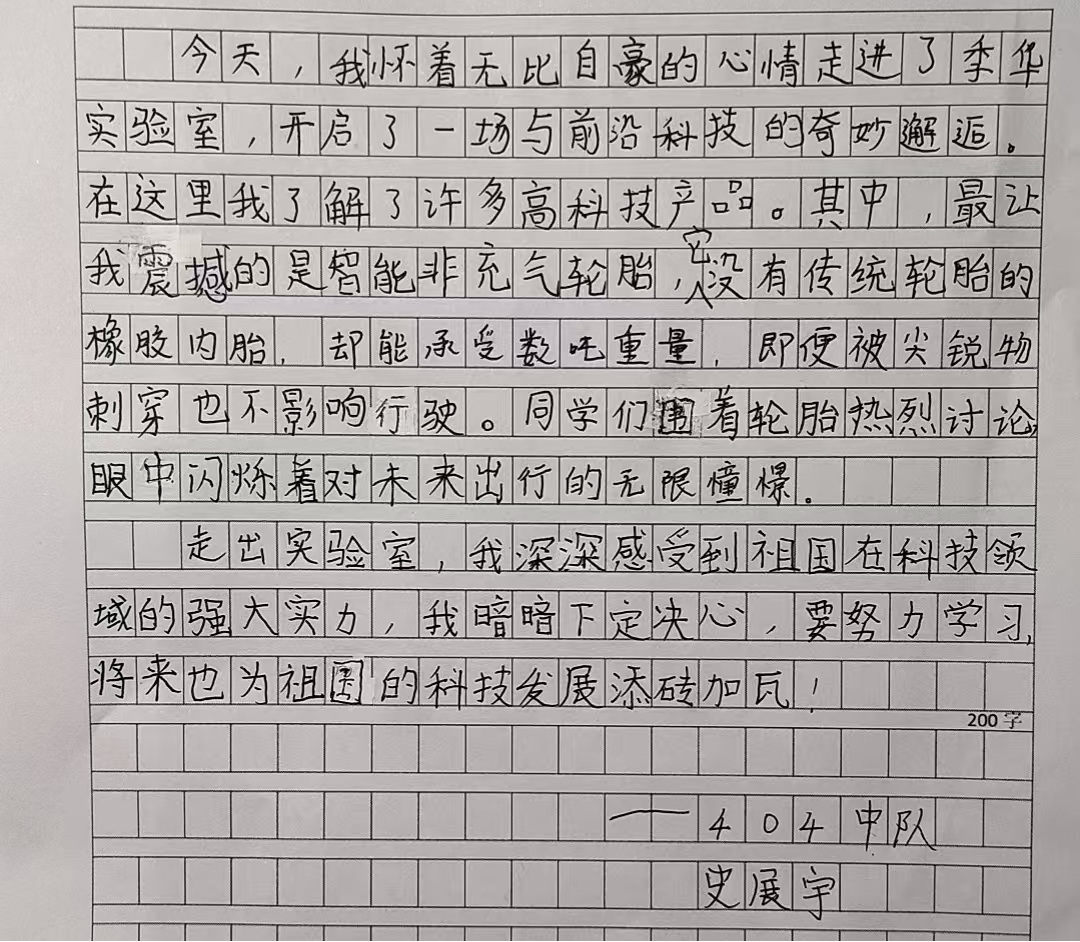 今天，我怀着无比自豪的心情走进了季华
实验室，开启了一场与前沿科技的奇妙邂逅。
在这里我了解了许多高科技产品。其中，最让
我震撼的是智能非充气轮胎，它没有传统轮胎的
橡胶内胎，却能承受数吨重量，即便被尖锐物
刺穿也不影响行驶。同学们围着轮胎热烈讨论，
眼中闪烁着对未来出行的无限憧憬。
走出实验室，我深深感受到祖国在科技领
域的强大实力，我暗暗下定决心，要努力学习，
将来也为祖国的科技发展添砖加瓦！
200字
——404中队
史展宇